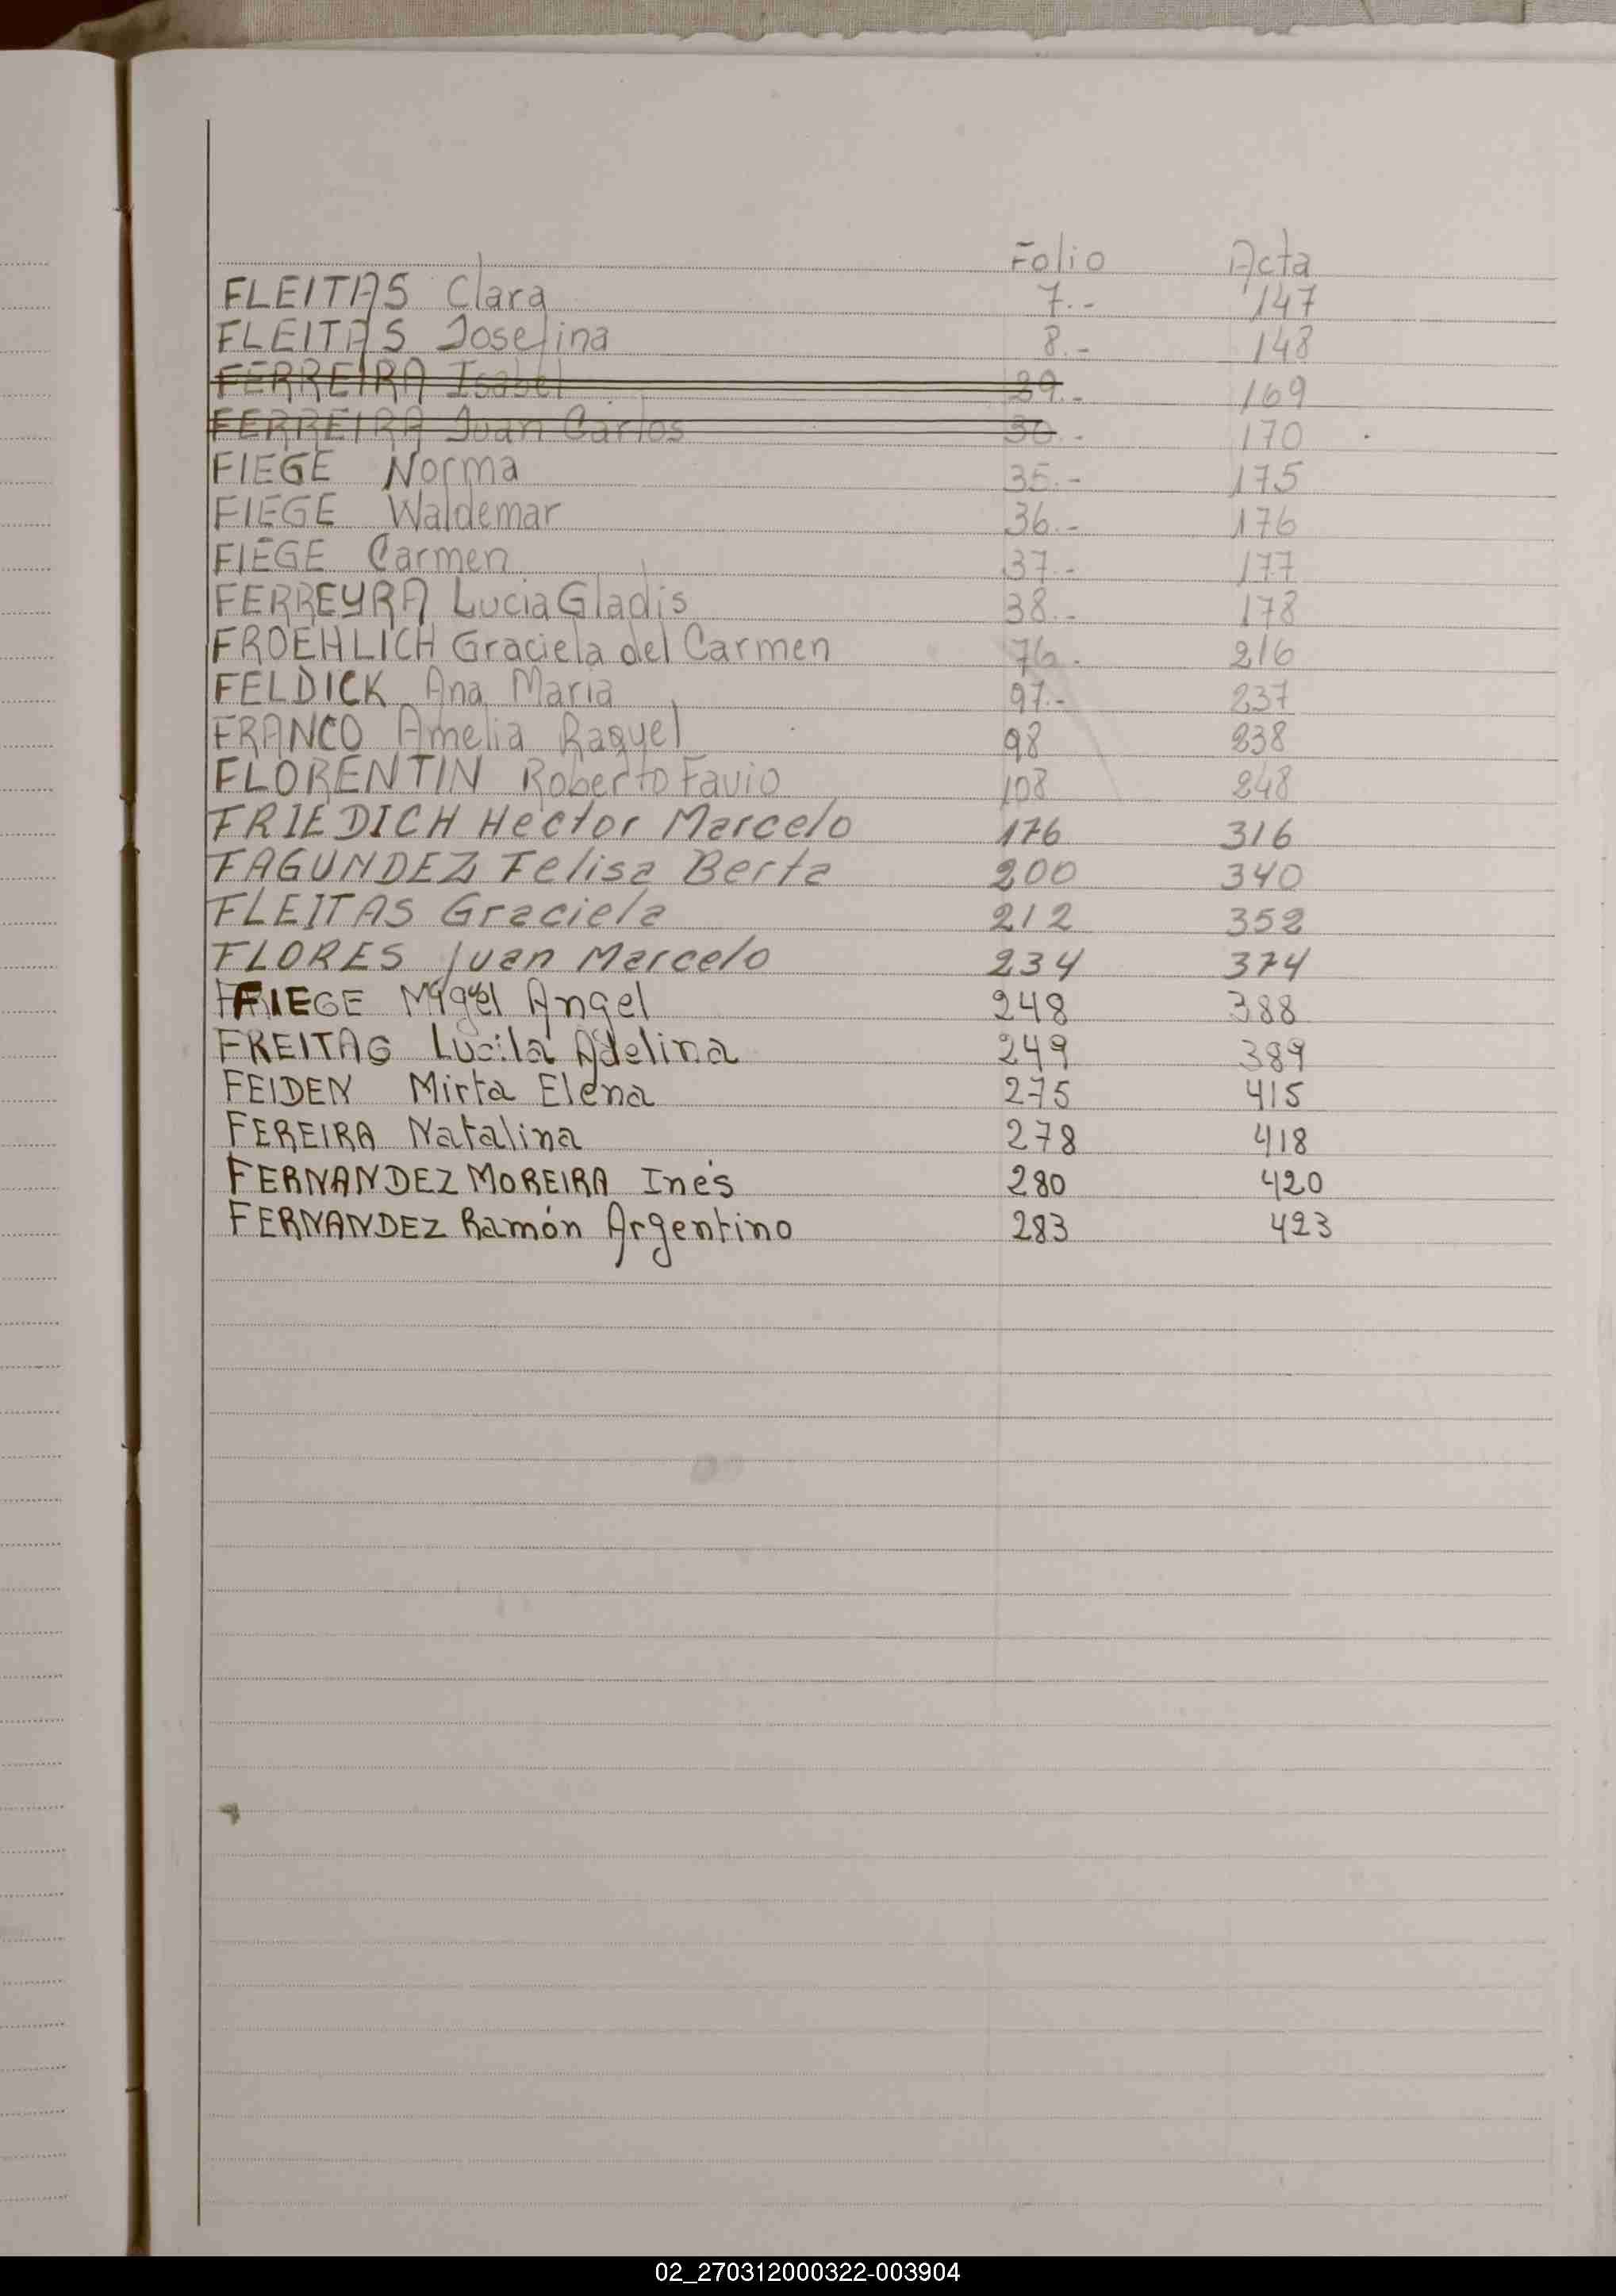 Folio Acta
FLEITAS Clara 7.- 147
FLEITAS Josefina 8.- 148
FERREIRA Isabel 29.- 169
FERREIRA Juan Carlos 30.- 170
FIEGE Norma 35.- 175
FIEGE Waldemar 36.- 176
FIEGE Carmen 37.- 177
FERREYRA Lucia Gladis 38.- 178
FROEHLICH Graciela del Carmen 76.- 216
FELDICK Ana Maria 97.- 237
FRANCO Amelia Raquel 98 238
FLORENTIN Roberto Favio 108 248
FRIEDICH Hector Marcelo 176 316
FAGUNDEZ Felisa Berta 200 340
FLEITAS Graciela 212 352
FLORES Juan Marcelo 234 374
FIEGE Miguel Angel 248 388
FREITAG Lucila Adelina 249 389
FEIDEN Mirta Elena 275 415
FEREIRA Natalina 278 418
FERNANDEZ MOREIRA Inés 280 420
FERNANDEZ Ramón Argentino 283 423
02_270312000322-003904